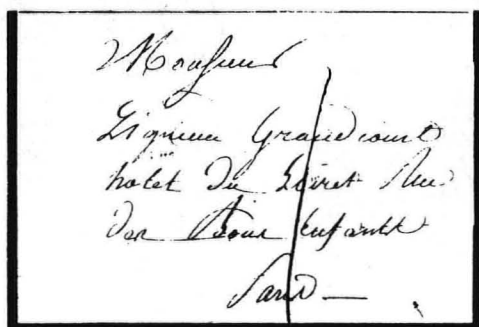 Monsieur
Ligneau Grandcourt
hotel Du Loiret Rue
des Bons Enfants
Paris